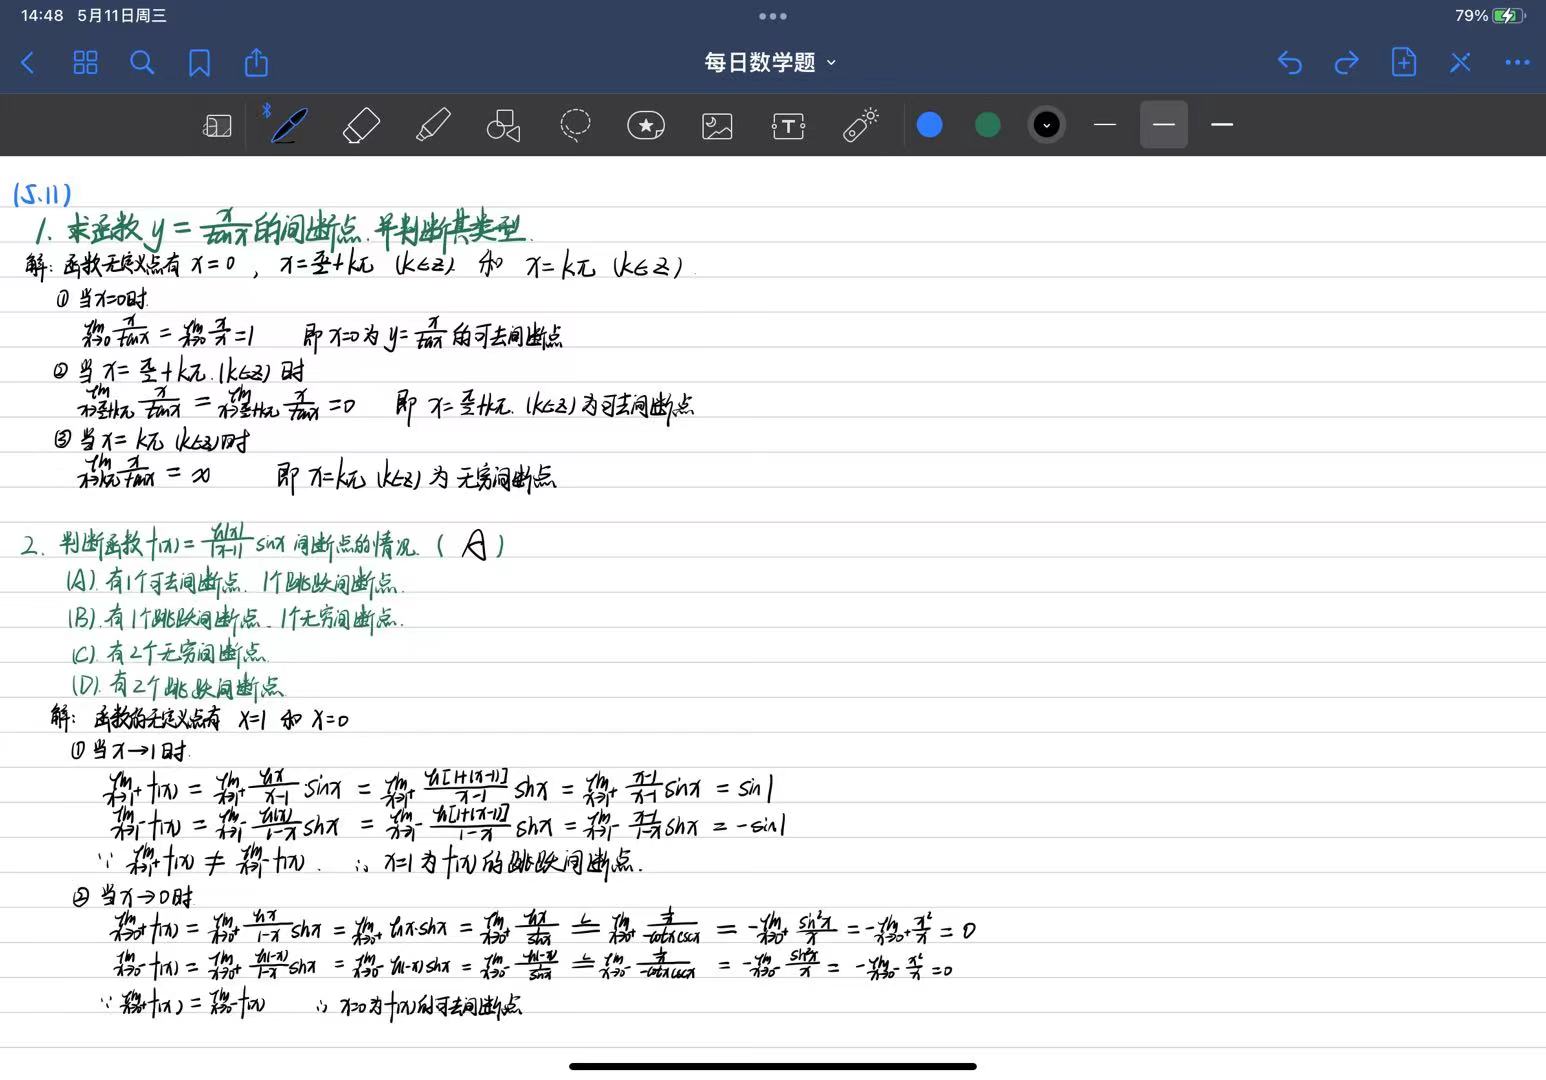 14:48 5月11日周三
79%
每日数学题
(5.11)
1. 求函数 y = x/tanx 的间断点,并判断其类型.
解: 函数无定义点有 x=0 , x=π/2+kπ (k∈Z) 和 x=kπ (k∈Z).
① 当x=0时.
lim x→0 x/tanx = lim x→0 x/x =1 即 x=0 为 y= x/tanx 的可去间断点
② 当 x= π/2+kπ.(k∈Z) 时
lim x→π/2+kπ x/tanx = lim x→π/2+kπ x/tanx =0 即 x=π/2+kπ. (k∈Z)为可去间断点
③ 当x= kπ (k∈Z)时
lim x→kπ x/tanx = ∞ 即 x=kπ (k∈Z) 为 无穷间断点
2. 判断函数 f(x)= ln|x|/|x-1| sinx 间断点的情况. ( A )
(A). 有1个可去间断点. 1个跳跃间断点.
(B). 有1个跳跃间断点、1个无穷间断点.
(C). 有2个无穷间断点.
(D). 有2个跳跃间断点.
解: 函数的无定义点有 x=1 和 x=0
① 当 x→1时.
lim x→1+ f(x) = lim x→1+ lnx/x-1 ·sinx = lim x→1+ ln[1+(x-1)]/x-1 sinx = lim x→1+ x-1/x-1 sinx = sin1
lim x→1- f(x) = lim x→1- ln(x)/1-x sinx = lim x→1- ln[1+(x-1)]/1-x sinx = lim x→1- x-1/1-x sinx = -sin1
∵ lim x→1+ f(x) ≠ lim x→1- f(x) . ∴ x=1 为 f(x) 的跳跃间断点.
② 当x→0时.
lim x→0+ f(x) = lim x→0+ lnx/1-x sinx = lim x→0+ lnx·sinx = lim x→0+ lnx/1/sinx =L= lim x→0+ 1/x/-cotxcscx = -lim x→0+ sin²x/x = -lim x→0+ x²/x = 0
lim x→0- f(x) = lim x→0+ ln(-x)/1-x sinx = lim x→0- ln(-x) sinx = lim x→0- ln(-x)/1/sinx =L= lim x→0- 1/x/-cotxcscx = -lim x→0- sin²x/x = -lim x→0- x²/x =0
∵ lim x→0+ f(x) = lim x→0- f(x) ∴ x=0 为 f(x) 的可去间断点